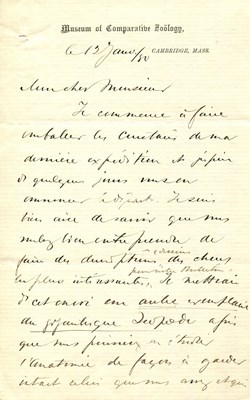 Museum of Comparative Zoölogy,
CAMBRIDGE, MASS.
le 12 Janv/80
Mon cher Monsieur
Je commence à faire
emballer les Crustacés de ma
dernière expédition et j'espère
d quelques jours vous en
annoncer le départ. Je suis
bien aise de savoir que vous
voulez bien entreprendre de
faire des descriptions des choses
les plus intéressantes, Je mettrai
à cet envoi un autre exemplaire
du gigantesque Isopode afin
que vous puissiez en étudier
l'anatomie de façon à garder
intact celui que vous avez